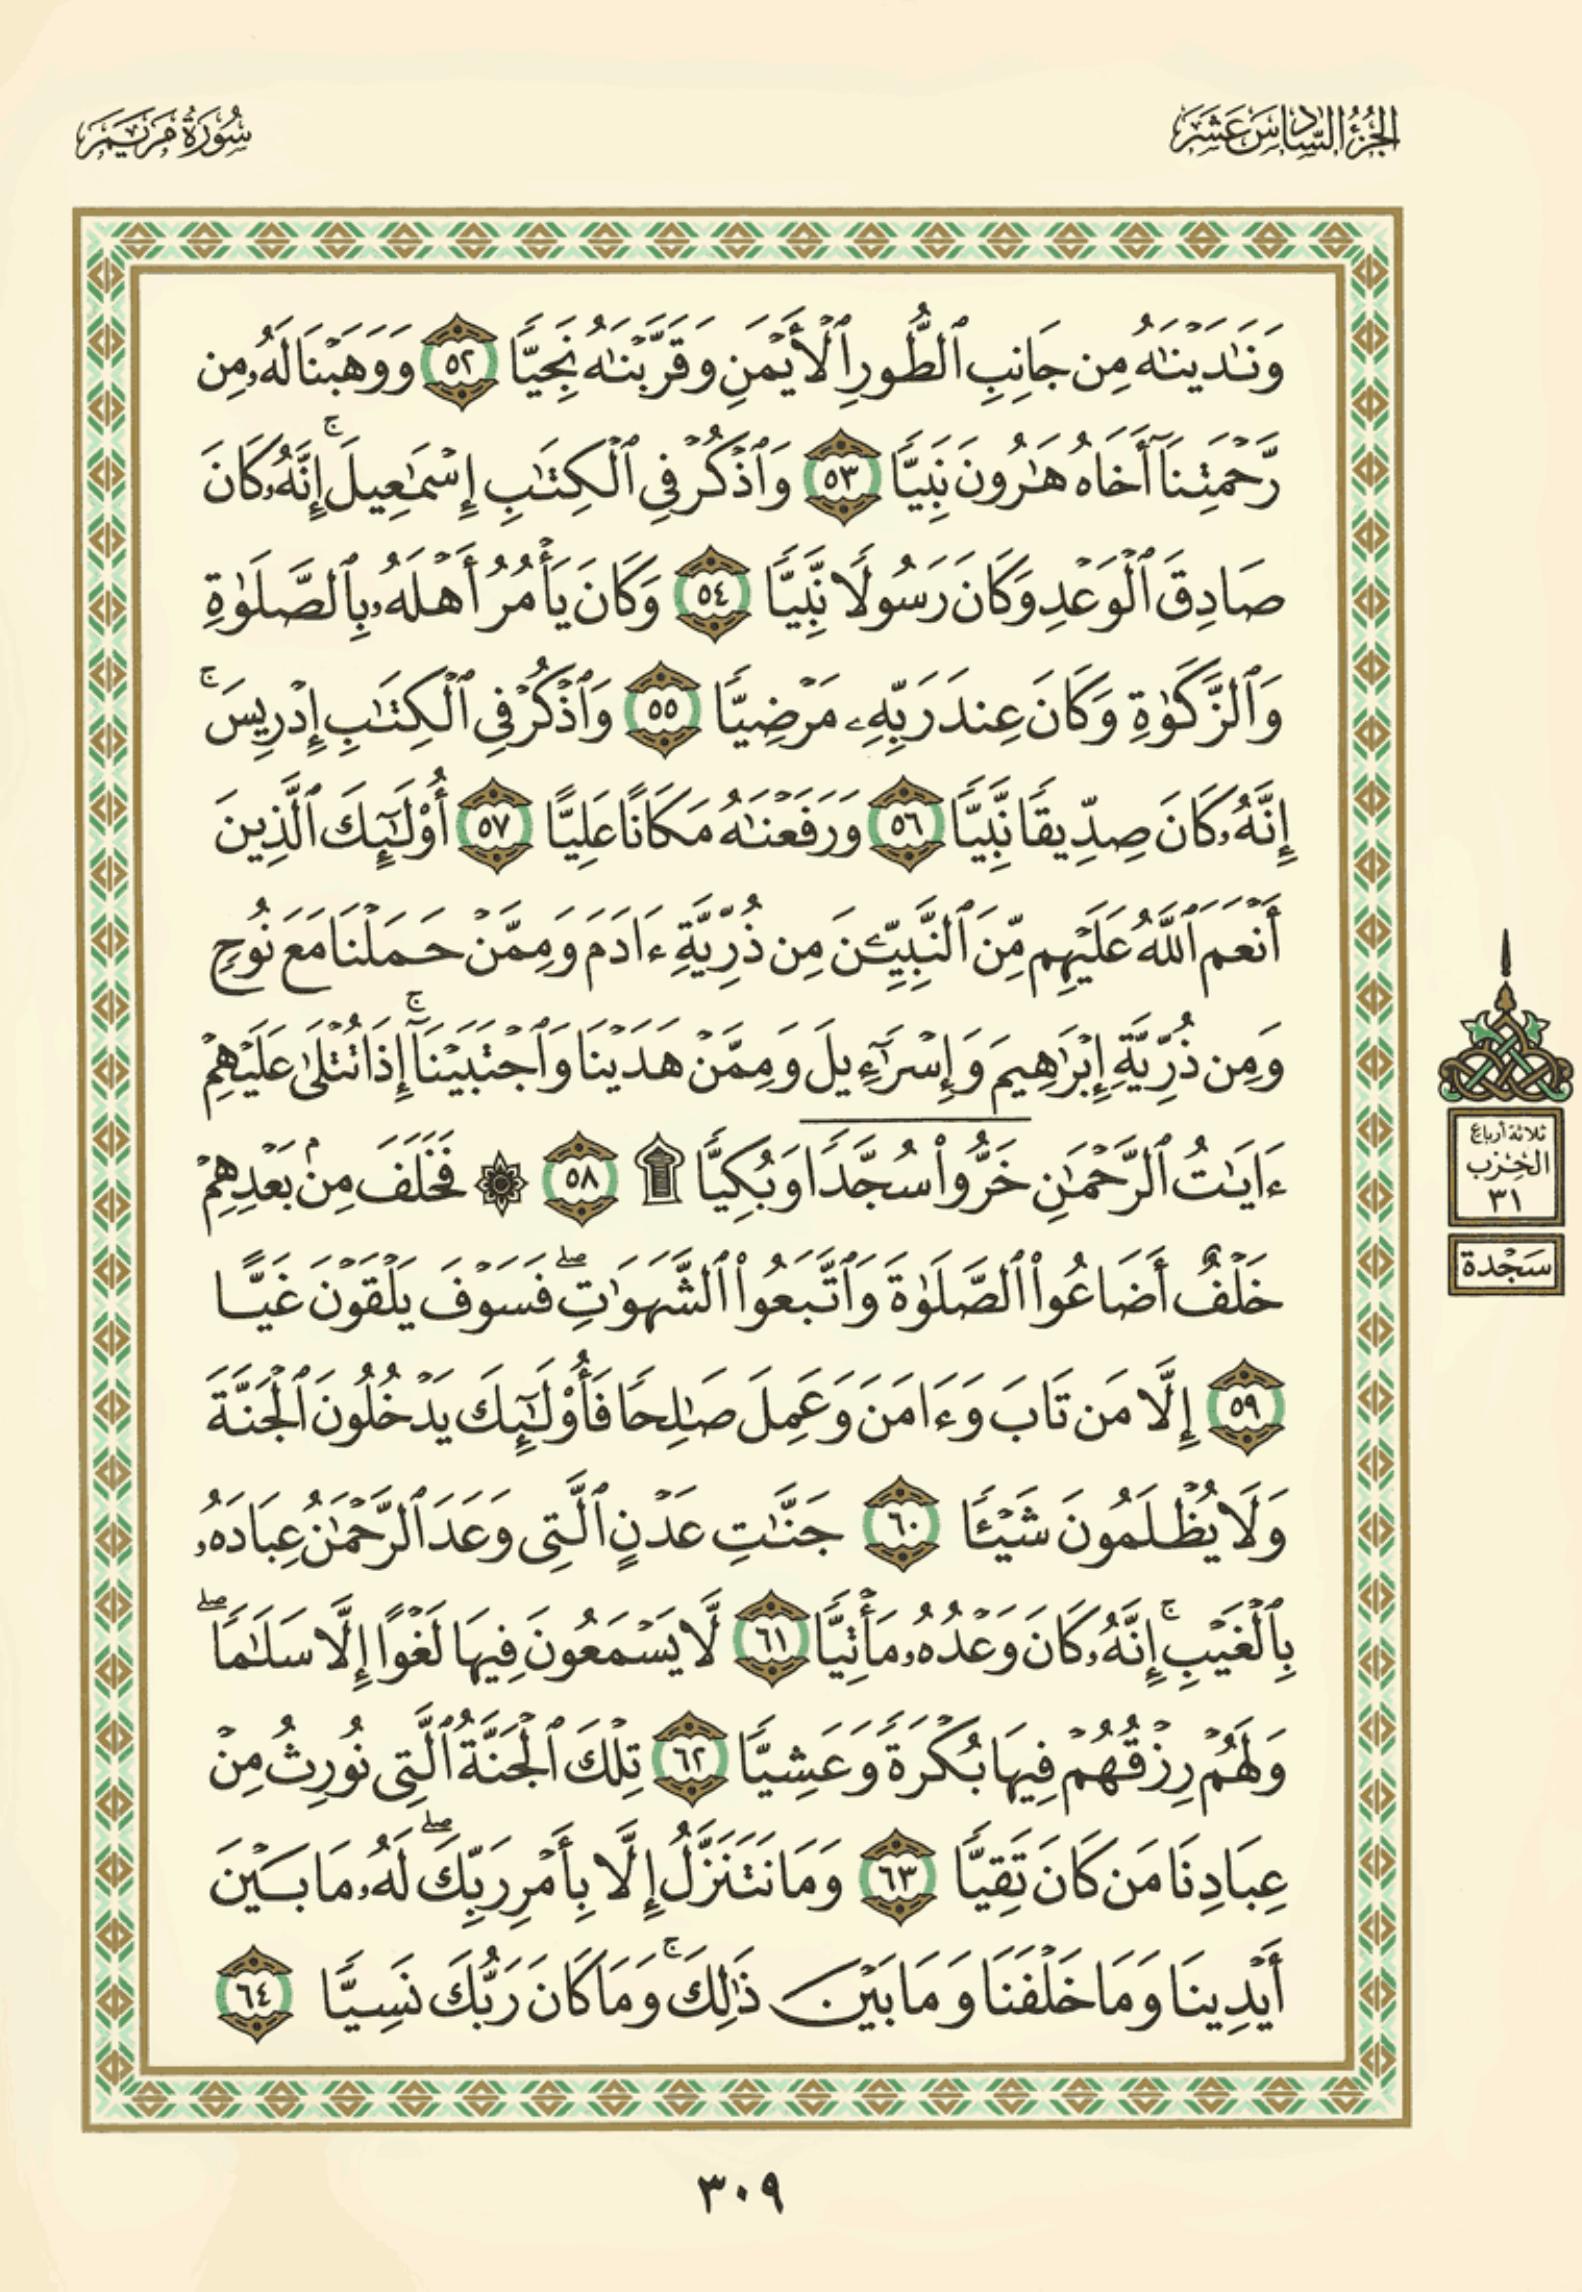 الجزء السادس عشر
سورة مريم
وَنَٰدَيْنَٰهُ مِن جَانِبِ ٱلطُّورِ ٱلْأَيْمَنِ وَقَرَّبْنَٰهُ نَجِيًّا ٥٢ وَوَهَبْنَا لَهُۥ مِن
رَّحْمَتِنَآ أَخَاهُ هَٰرُونَ نَبِيًّا ٥٣ وَٱذْكُرْ فِى ٱلْكِتَٰبِ إِسْمَٰعِيلَ ۚ إِنَّهُۥ كَانَ
صَادِقَ ٱلْوَعْدِ وَكَانَ رَسُولًا نَّبِيًّا ٥٤ وَكَانَ يَأْمُرُ أَهْلَهُۥ بِٱلصَّلَوٰةِ
وَٱلزَّكَوٰةِ وَكَانَ عِندَ رَبِّهِۦ مَرْضِيًّا ٥٥ وَٱذْكُرْ فِى ٱلْكِتَٰبِ إِدْرِيسَ ۚ
إِنَّهُۥ كَانَ صِدِّيقًا نَّبِيًّا ٥٦ وَرَفَعْنَٰهُ مَكَانًا عَلِيًّا ٥٧ أُو۟لَٰٓئِكَ ٱلَّذِينَ
أَنْعَمَ ٱللَّهُ عَلَيْهِم مِّنَ ٱلنَّبِيِّـۧنَ مِن ذُرِّيَّةِ ءَادَمَ وَمِمَّنْ حَمَلْنَا مَعَ نُوحٍ
وَمِن ذُرِّيَّةِ إِبْرَٰهِيمَ وَإِسْرَٰٓءِيلَ وَمِمَّنْ هَدَيْنَا وَٱجْتَبَيْنَآ ۚ إِذَا تُتْلَىٰ عَلَيْهِمْ
ءَايَٰتُ ٱلرَّحْمَٰنِ خَرُّوا۟ سُجَّدًا وَبُكِيًّا ۩ ٥٨ ۞ فَخَلَفَ مِنۢ بَعْدِهِمْ
خَلْفٌ أَضَاعُوا۟ ٱلصَّلَوٰةَ وَٱتَّبَعُوا۟ ٱلشَّهَوَٰتِ ۖ فَسَوْفَ يَلْقَوْنَ غَيًّا
٥٩ إِلَّا مَن تَابَ وَءَامَنَ وَعَمِلَ صَٰلِحًا فَأُو۟لَٰٓئِكَ يَدْخُلُونَ ٱلْجَنَّةَ
وَلَا يُظْلَمُونَ شَيْـًٔا ٦٠ جَنَّٰتِ عَدْنٍ ٱلَّتِى وَعَدَ ٱلرَّحْمَٰنُ عِبَادَهُۥ
بِٱلْغَيْبِ ۚ إِنَّهُۥ كَانَ وَعْدُهُۥ مَأْتِيًّا ٦١ لَّا يَسْمَعُونَ فِيهَا لَغْوًا إِلَّا سَلَٰمًا ۖ
وَلَهُمْ رِزْقُهُمْ فِيهَا بُكْرَةً وَعَشِيًّا ٦٢ تِلْكَ ٱلْجَنَّةُ ٱلَّتِى نُورِثُ مِنْ
عِبَادِنَا مَن كَانَ تَقِيًّا ٦٣ وَمَا نَتَنَزَّلُ إِلَّا بِأَمْرِ رَبِّكَ ۖ لَهُۥ مَا بَيْنَ
أَيْدِينَا وَمَا خَلْفَنَا وَمَا بَيْنَ ذَٰلِكَ ۚ وَمَا كَانَ رَبُّكَ نَسِيًّا ٦٤
ثلاثة أرباع
الحزب
٣١
سجدة
٣٠٩